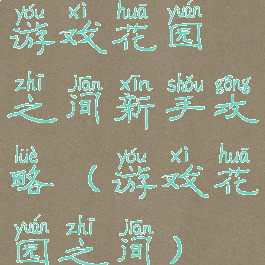 yóu xì huā yuán
游戏花园
zhī jiān xīn shǒu gōng
之间新手攻
lüè yóu xì huā
略（游戏花
yuán zhī jiān
园之间）